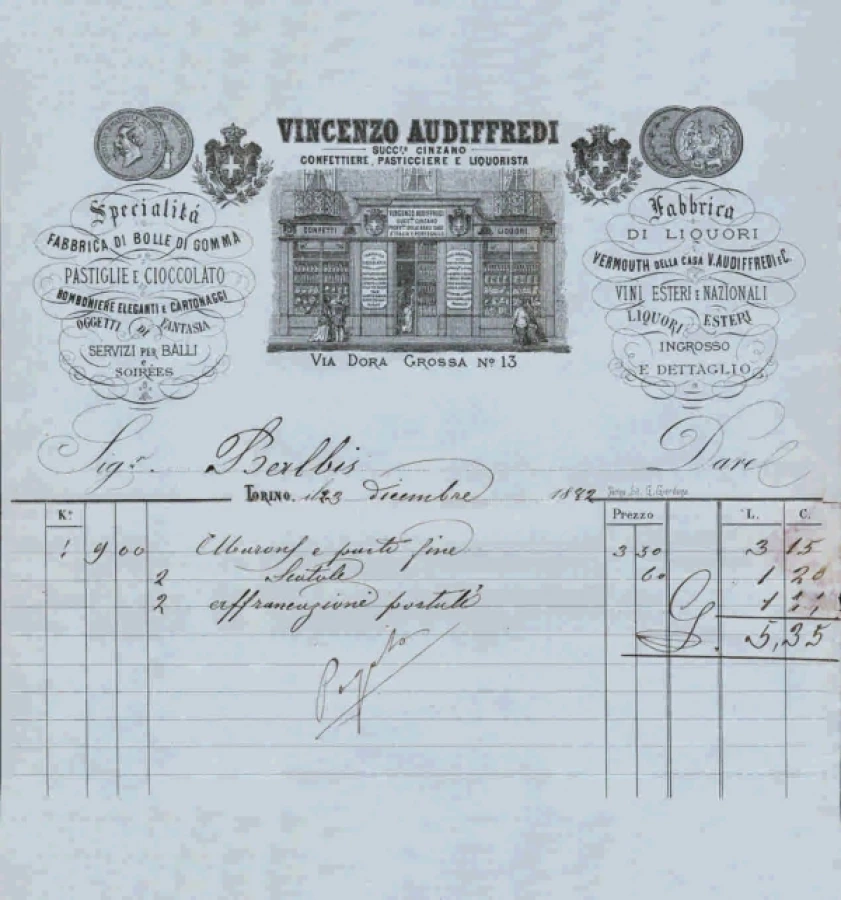 VINCENZO AUDIFFREDI
SUCC.re CINZANO
CONFETTIERE, PASTICCIERE E LIQUORISTA
Specialitá
FABBRICA DI BOLLE DI GOMMA
PASTIGLIE E CIOCCOLATO
BOMBONIERE ELEGANTI E CARTONAGGI
OGGETTI DI FANTASIA
SERVIZI PER BALLI
e
SOIRÉES
VINCENZO AUDIFFREDI
CONFETTI
LIQUORI
VIA DORA GROSSA Nº 13
Fabbrica
DI LIQUORI
VERMOUTH DELLA CASA V. AUDIFFREDI E C.
VINI ESTERI E NAZIONALI
LIQUORI ESTERI
INGROSSO
E DETTAGLIO
Sig.r Balbis Dare
TORINO, 23 dicembre 1872
K.º Prezzo L. C.
1 900 e paste fine 3 50 3 15
2 Scatole 60 1 20
2 affrancazioni postali 1
5,35
Pagato